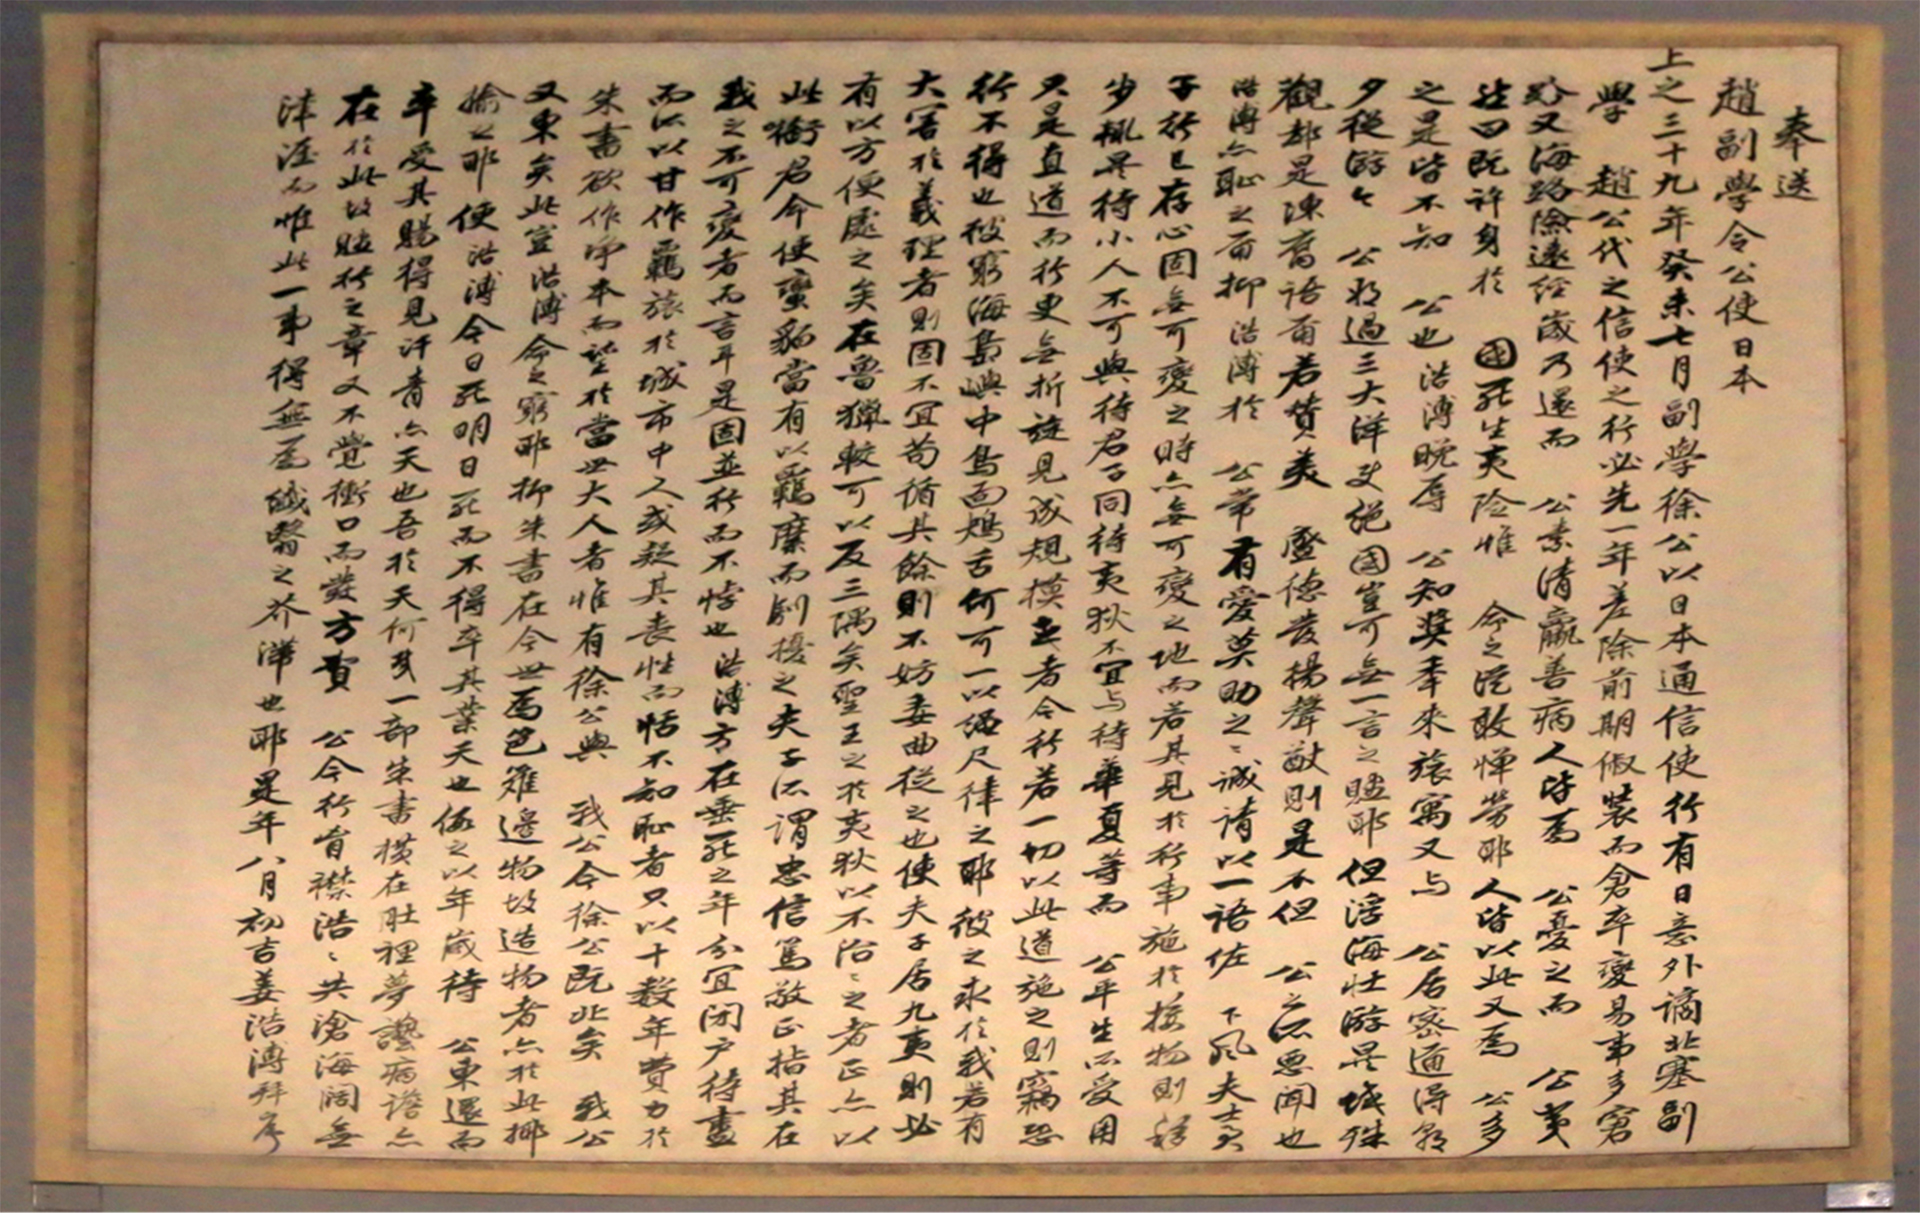 奉送
趙副學令公使日本
上之三十九年癸未七月副學徐公以日本通信使行有日意外謫北塞副
學 趙公代之信使之行必先一年差除前期俶裝而倉卒變易事多窘
跲又海路險遠經歲乃還而 公素清羸善病人皆爲 公憂之而 公莫
然曰既許身於 國死生夷險惟 命之從敢憚勞耶人皆以此又爲 公多
之是皆不知 公也浩溥晚辱 公知奬年來旅寓又与 公居密通得朝
夕從游今 公將過三大洋支絶國豈可無一言之贐耶但浮海壮游異域殊
觀都是陳腐語爾若賛美 盛德發揚聲猷則是不但 公之所惡聞也
浩溥亦恥之爾抑浩溥於 公常有愛莫助之之誠請以一語佐 下風夫士君
子於己存心固無可變之時亦無可變之地而若其見於行事施於接物則稍
少輒異待小人不可與待君子同待夷狄不宜与待華夏等而 公平生所受用
只是直道而行更無折旋見成規模去者今行若一切以此道施之則竊恐
行不得也彼窮海島嶼中鳥面鴂舌何可一以繩尺律之耶彼之求於我若有
大害於義理者則固不宜苟循其餘則不妨委曲從之也使夫子居九夷則必
有以方便處之矣在魯獵較可以反三隅矣聖王之於夷狄以不治治之者正亦以
此衔君命使蠻貊當有以羈縻而馴擾之夫子所謂忠信篤敬正指其在
我之不可變者而言耳是固並行而不悖也浩溥方在垂死之年分宜閉户待盡
而所以甘作羈旅於城市中人或疑其喪性而恬不知恥者只以十數年費力於
朱書欲作淨本而望於當世大人者惟有徐公與 我公今徐公既北矣 我公
又東矣此豈浩溥命之窮耶抑朱書在今世爲笆籬邊物故造物者亦於此揶
揄之耶 便浩溥今日死明日死而不得卒其業天也假之以年歲待 公東還而
卒受其賜得見汗青亦天也吾於天何哉一部朱書横在肚裡夢讝病譫亦
在於此故贐行之章又不覺衝口而發方賀 公今行胷襟浩浩共滄海闊無
津涯而惟此一事得無爲纖翳之芥滯也耶是年八月初吉姜浩溥拜序